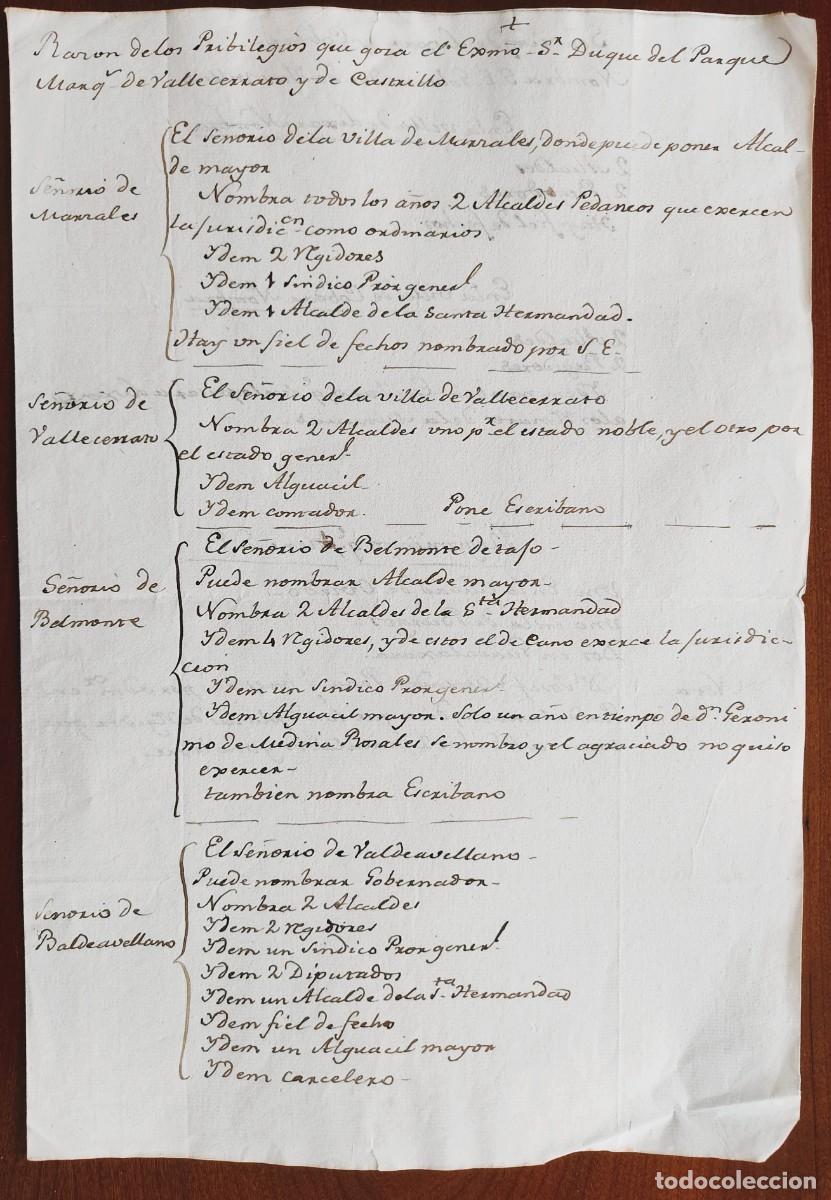 Razon de los Pribilegios que goza el Exmo. Sr. Duque del Parque
Marqs. de Vallecerrato y de Castrillo
Señorio de
Marzales
El señorio de la villa de Marzales, donde puede poner Alcal-
de mayor
Nombra todos los años 2 Alcaldes Pedaneos que exercen
la jurisdicen. como ordinarios
Ydem 2 Rgidores
Ydem 1 sindico Pror general
Ydem 1 Alcalde de la santa Hermandad.
Hay un fiel de fechos nombrado por S. E.
Señorio de
Vallecerrato
El señorio de la villa de Vallecerrato
Nombra 2 Alcaldes uno pr. el estado noble, y el otro por
el estado generl.
Ydem Alguacil
Ydem contador. Pone Escribano
Señorio de
Belmonte
El señorio de Belmonte de tajo-
Puede nombrar Alcalde mayor-
Nombra 2 Alcaldes de la Sta. Hermandad
Ydem 4 Rgidores, y de estos el de Cano exerce la jurisdic-
cion
Ydem un sindico Pror generl.
Ydem Alguacil mayor. solo un año en tiempo de dn. Geroni
mo de Medina Rosales se nombro y el agraciado no quiso
exercer-
tambien nombra Escribano
señorio de
Baldeavellano
El señorio de Valdeavellano-
Puede nombrar Gobernador-
Nombra 2 Alcaldes
Ydem 2 Rgidores
Ydem un sindico Pror generl.
Ydem 2 Diputados
Ydem un Alcalde de la Sta. Hermandad
Ydem fiel de fecho
Ydem un Alguacil mayor
Ydem carcelero-
todocoleccion